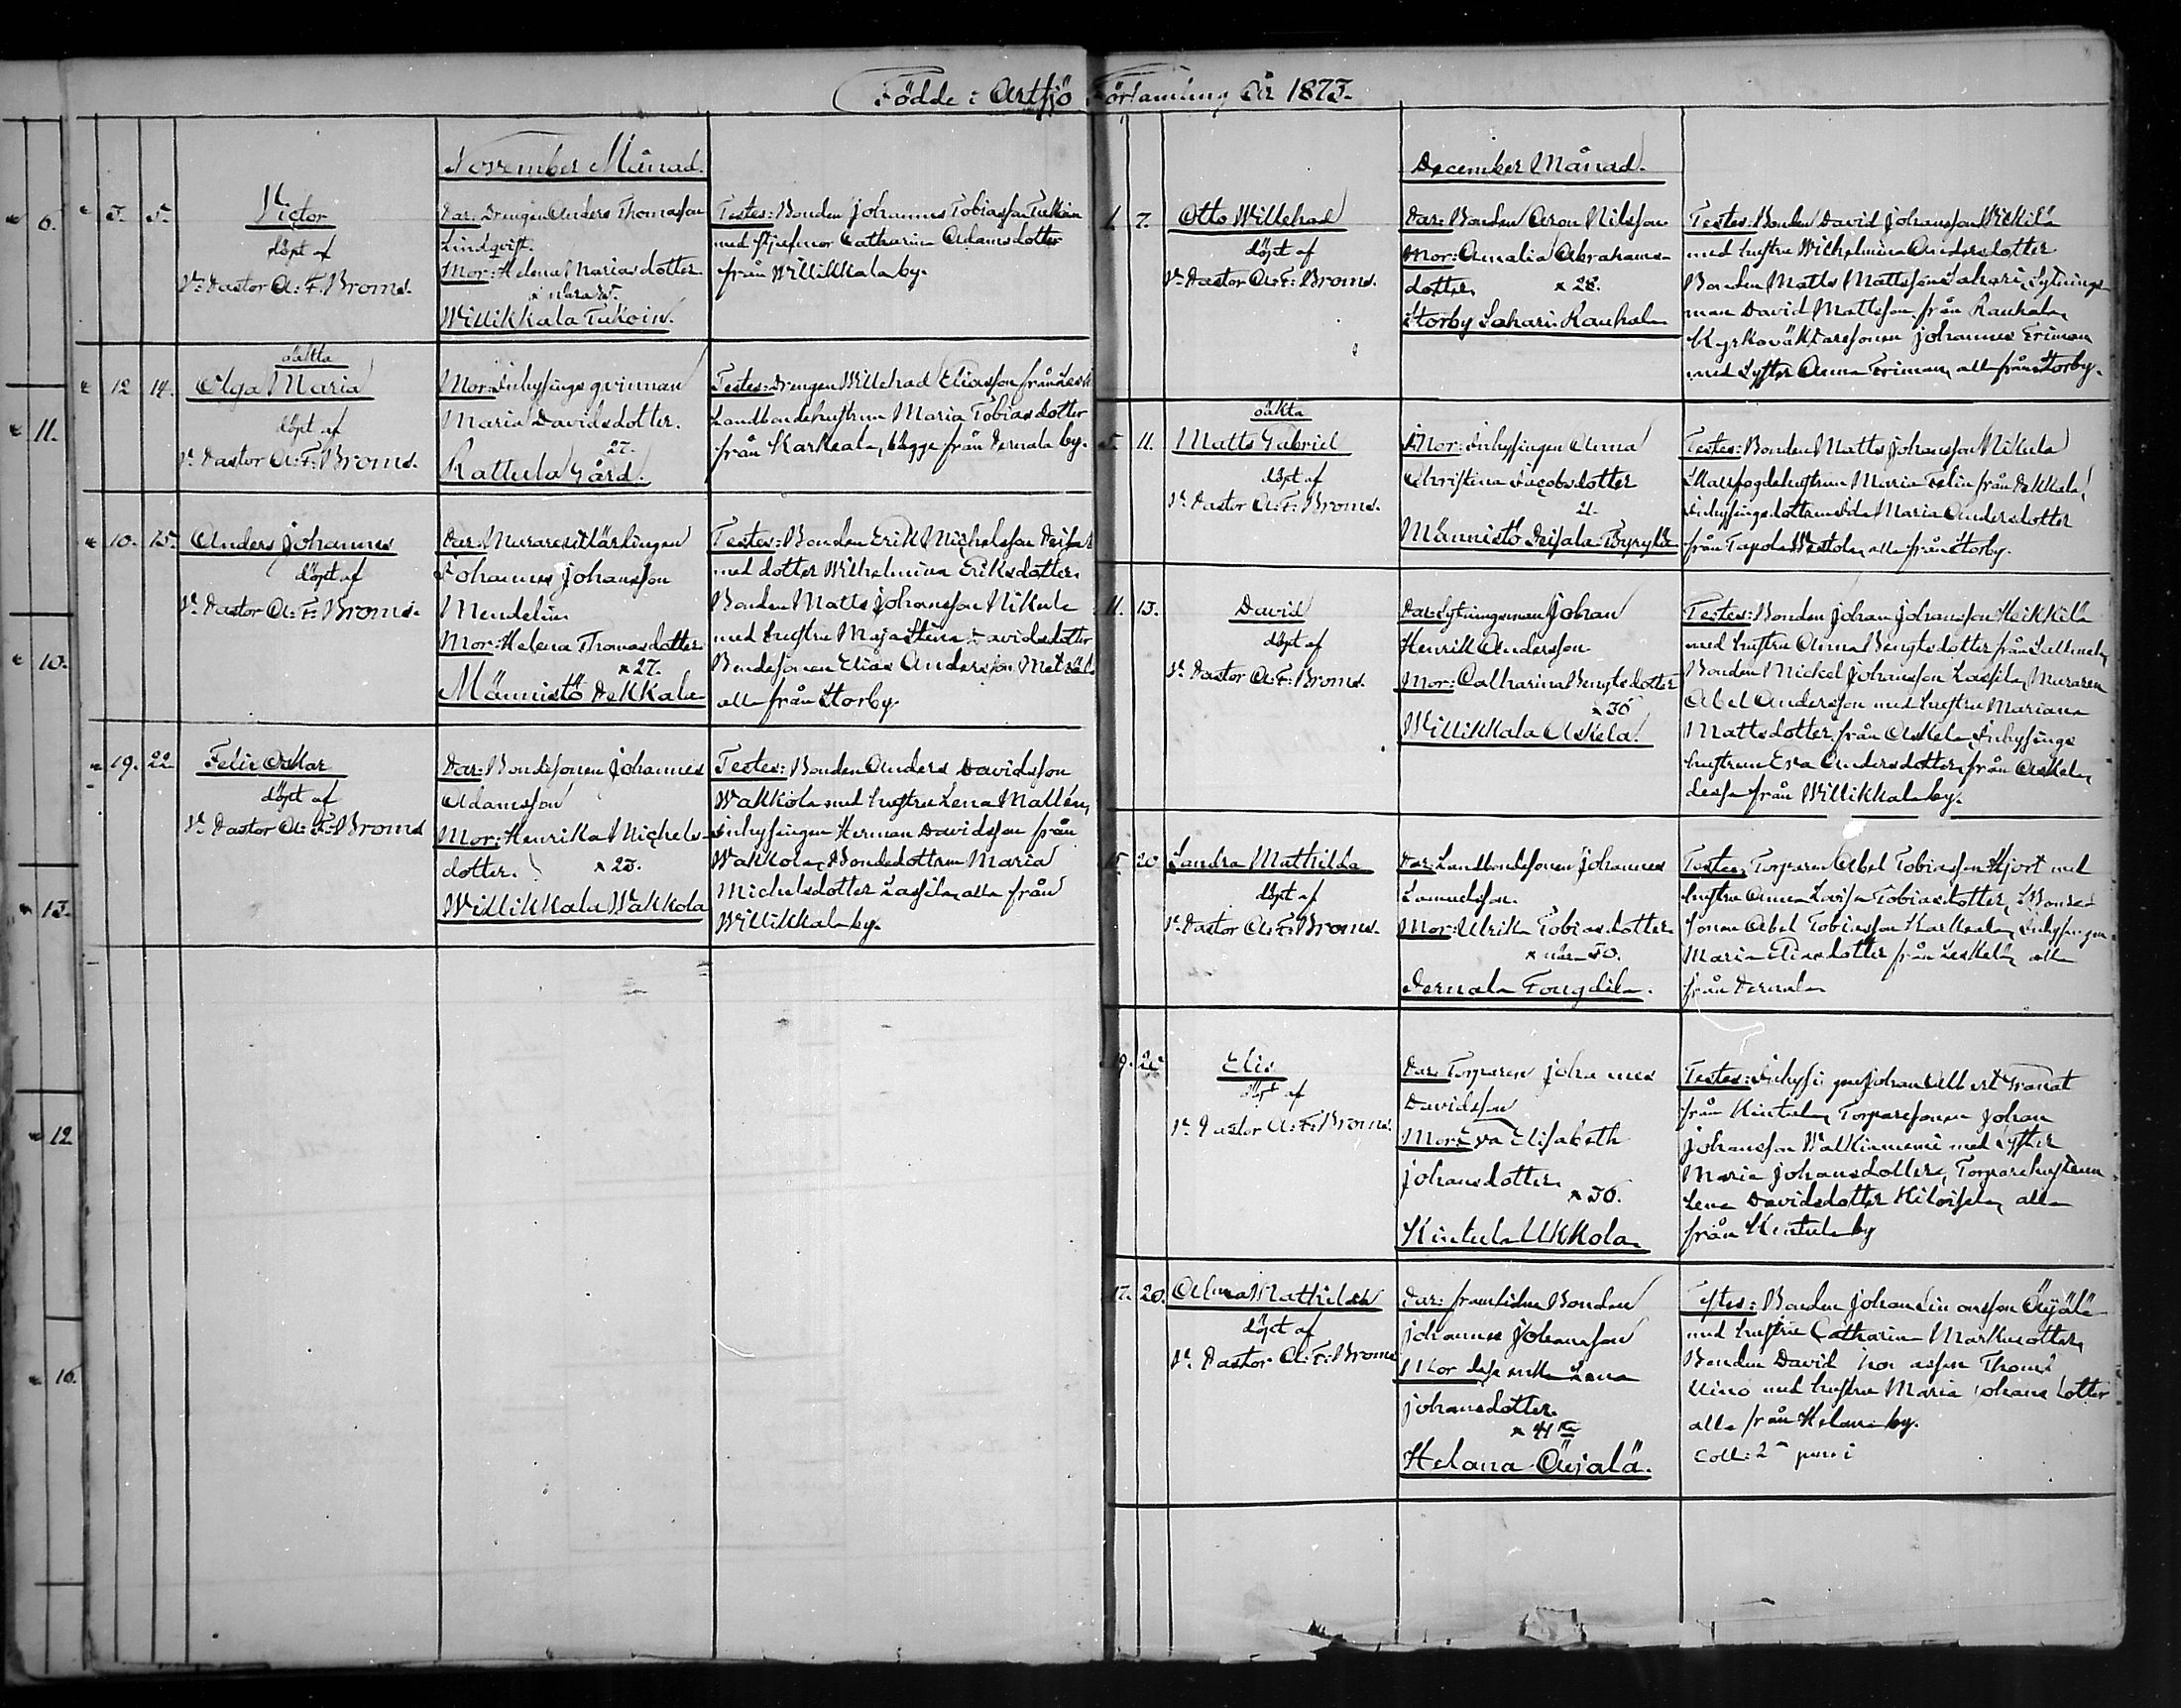 Födde i Artsjö Församling År 1873.
November Månad.
5. 5.
Victor
döpt af
V. Pastor A: F: Broms.
Par: Drengen Anders Thomasson
Lindqvist.
Mor: Helena Mariasdotter
Willikkala Tukoin.
Testes: Bonden Johannes Tobiasson
med stjufmor Catharina Adamsdotter
från Willikkala by.
12 14.
oäkta
Olga Maria
döpt af
V. Pastor A: F: Broms.
Mor: Inhysings qvinnan
Maria Davidsdotter.
27.
Rattula Gård.
Testes: Drengen Willehad Eliasson från
Landbondehustrun Maria Tobiasdotter
från Karkeala, bägge från Pernala by.
10. 15.
Anders Johannes
döpt af
V. Pastor A: F: Broms.
Par: Murare
Johannes Johansson
Mendelin
Mor: Helena Thomasdotter
x 27.
Männistö Pekkala
Testes: Bonden Erik Michelsson
med dotter Wilhelmina Eriksdotter
Bonden Matts Johansson Nikula
med hustru Maja Stina Davidsdotter
Bondesonen Elias Andersson
alla från Storby.
19. 22
Felix Oskar
döpt af
V. Pastor A: F: Broms
Par: Bondesonen Johannes
Adamsson
Mor: Henrika Michels-
dotter. x 23.
Willikkala Wakkola
Testes: Bonden Anders Davidsson
Wakkola med hustru Lena
Inhysingen Herman Davidsson från
Wakkola, Bondedottren Maria
Michelsdotter Lassila, alla från
Willikkala by.
6.
11.
10.
13.
12
16.
December Månad.
1. 7.
Otto Willehad
döpt af
V. Pastor A: F: Broms.
Par: Bonden Aron Nilsson
Mor: Amalia Abrahams-
dotter x 28.
Storby Sahari Rauhala
Testes: Bonden David Johansson
med hustru Wilhelmina Andersdotter
Bonden Matts Mattsson Sahari, Sytnings-
man David Mattsson från Rauhala,
Kyrkoväktaresonen Johannes Friman
med Syster Anna Friman, alla från Storby.
5. 11.
oäkta
Matts Gabriel
döpt af
V. Pastor A: F: Broms.
Mor: Inhysingen Anna
Christina Jacobsdotter
21.
Männistö
Testes: Bonden Matts Johansson Nikula
hustrun Maria från Pekkala,
Inhysingsdottren Ida Maria Andersdotter
från alla från Storby.
11. 13.
David
döpt af
V. Pastor A: F: Broms.
Par: Sytningsman Johan
Henrik Andersson
Mor: Catharina Bengtsdotter
x 36
Willikkala Askela.
Testes: Bonden Johan Johansson Heikkilä
med hustru Anna Bengtsdotter från
Bonden Mickel Johansson Lassila, Muraren
Abel Andersson med hustru Mariana
Mattsdotter från Askela, Inhysings
hustrun Eva Andersdotter från Askela,
dessa från Willikkala by.
15. 20
Sandra Mathilda
döpt af
V. Pastor A: F: Broms.
Par: Landbondesonen Johannes
Samuelsson.
Mor: Ulrika Tobiasdotter
Pernala Fougdila.
Testes: Torparen Abel Tobiasson Hjort med
hustru Anna Lovisa Tobiasdotter, Bonde-
sonen Abel Tobiasson Karkeala, Inhysingen
Maria Eliasdotter från Leskelä, alla
från Pernala
19. 26
Elis
döpt af
V. Pastor A: F: Broms.
Par: Torparen Johannes
Davidsson
Mor: Eva Elisabeth
Johansdotter
x 36.
Kintula Ukkola
Testes: Inhysingen Johan Albert Granat
från Kintula, Torparesonen Johan
Johansson Walkianiemi med syster
Maria Johansdotter, Torparehustrun
Lena Davidsdotter alla
från Kintula by
17. 20.
Alma Mathilda
döpt af
V. Pastor A: F: Broms
Par: framlidne Bonden
Johannes Johansson
Mor dess enka Lena
Johansdotter
x 41
Helana Äijälä.
Testes: Bonden Johan Simonsson Äijälä
med hustru Catharina Markusdotter,
Bonden David
med hustru Maria Johansdotter
alla från Helana by.